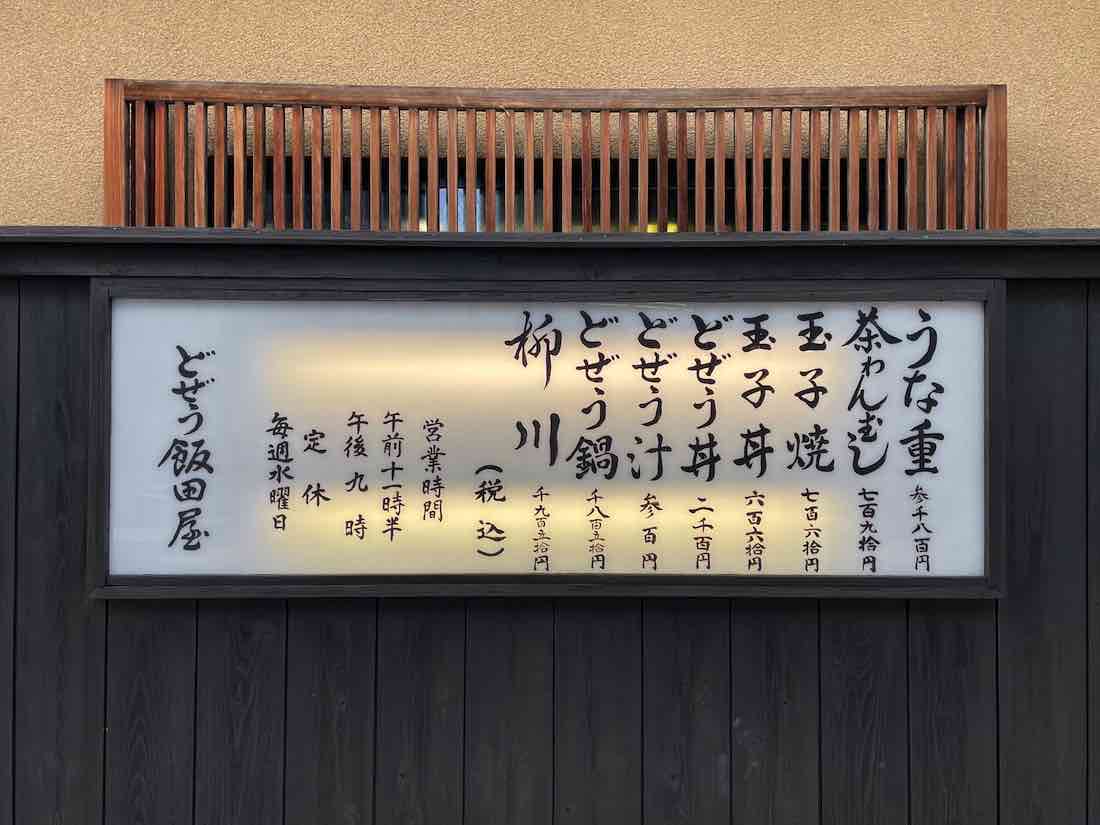 うな重 参千八百円
茶わんむし 七百九拾円
玉子焼 七百六拾円
玉子丼 六百六拾円
どぜう丼 二千百円
どぜう汁 参百円
どぜう鍋 千八百五拾円
柳川 千九百五拾円
（税込）
営業時間
午前十一時半
午後九時
定休
毎週水曜日
どぜう飯田屋